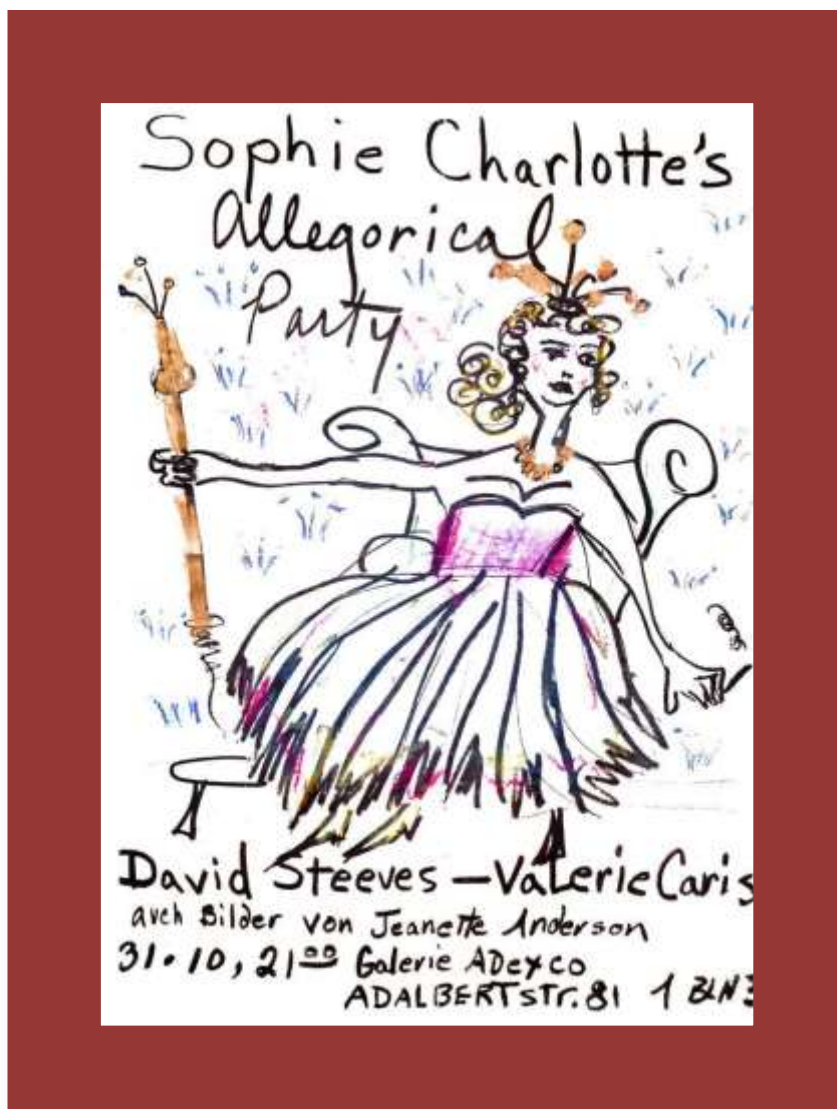 Sophie Charlotte's
Allegorical
Party
David Steeves – Valerie Caris
auch Bilder von Jeanette Anderson
31.10, 21⁰⁰ Galerie ADexco
ADALBERTstr. 81 1 BLN 3